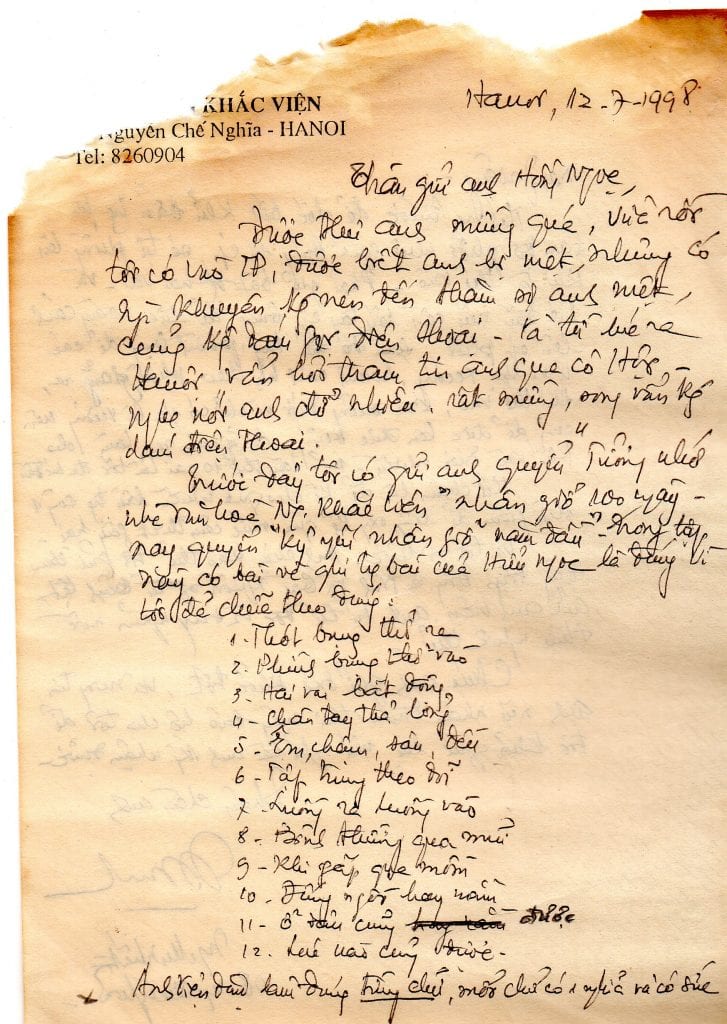 KHẮC VIỆN
Nguyễn Chế Nghĩa - HANOI
Tel: 8260904
Hanoi, 12-7-1998
Thân gửi anh Hồng Ngọc,
Được thư anh mừng quá, vừa rồi
tôi có vào TP, được biết anh bị mệt, nhưng có
ng. khuyên kg nên đến thăm sợ anh mệt,
cũng kg dám gọi điện thoại - Và từ bé ra
Hanoi vẫn hỏi thăm tin anh qua cô
nghe nói anh đỡ nhiều. rất mừng, song vẫn kg
dám điện thoại.
Trước đây tôi có gửi anh quyển "Tưởng nhớ
nhà văn hoá Ng. Khắc Viện" nhân giỗ 100 ngày -
nay quyển "Kỷ yếu nhân giỗ năm đầu" - Trong tập
này có bài vè ghi bài của Hữu Ngọc là đúng vì
tôi đã chữa theo đúng:
1- Thót bụng thở ra
2- Phình bụng thở vào
3- Hai vai bất động
4- Chân tay thả lỏng
5- Êm, chậm, sâu, đều
6- Tập trung theo dõi
7- Luồng ra luồng vào
8- Bình thường qua mũi
9- Khi gấp qua mồm
10- Đứng ngồi hay nằm
11- Ở đâu cũng được
12- Lúc nào cũng được -
x Anh Viện dặn làm đúng từng chữ, mỗi chữ có ý nghĩa và có sức